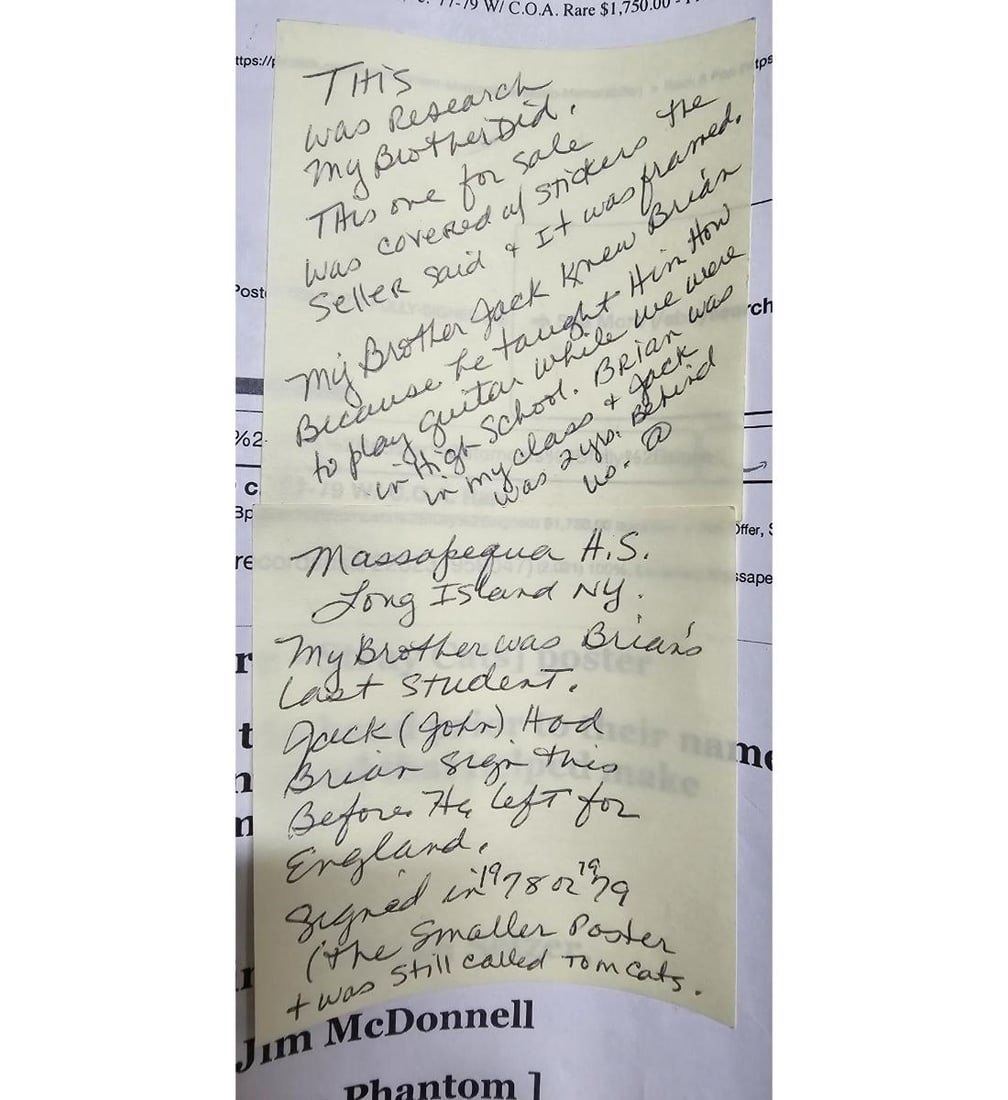 77-79 W/ C.O.A. Rare $1,750.00
THis
was Research
My Brother Did.
This one for sale
was covered w/ stickers the
seller said & It was framed.
My Brother Jack Knew Brian
Because he taught Him How
to play guitar while we were
in High School. Brian was
in my class & Jack
was 2 yrs. Behind
us.
Massapequa H.S.
Long Island NY.
My Brother was Brian's
Last Student.
Jack (John) Had
Brian sign this
Before He left for
England.
Signed in 1978 or 1979
(the Smaller Poster
+ was still called Tomcats.
Jim McDonnell
Phantom ]